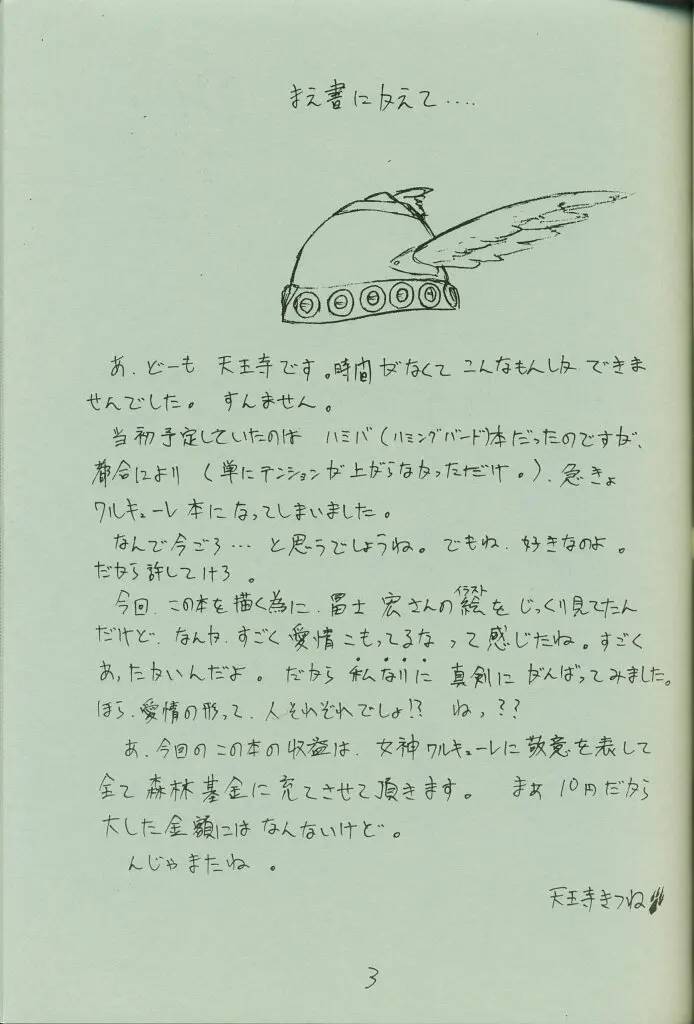 まえ書に加えて‥‥
あ、どーも 天王寺です。時間がなくて こんなもんしか できま
せんでした。 すんません。
当初予定していたのは ハミバ(ハミングバード)本だったのですが、
都合により (単にテンションが上がらなかっただけ。)、急きょ
ワルキューレ本になってしまいました。
なんで今ごろ… と思うでしょうね。でもね、好きなのよ。
だから許してけろ。
今回、この本を描く為に、冨士 宏さんの絵(イラスト)を じっくり見てたん
だけど、なんか、すごく 愛情こもってるな って 感じたね。すごく
あったかいんだよ。 だから 私なりに 真剣に がんばってみました。
ほら、愛情の形って、人それぞれでしょ!? ねっ??
あ、今回の この本の 収益は、女神ワルキューレに 敬意を表して
全て 森林基金に 充てさせて 頂きます。 まあ 10円だから
大した金額には なんないけど。
んじゃまたね 。
天王寺きつね
3